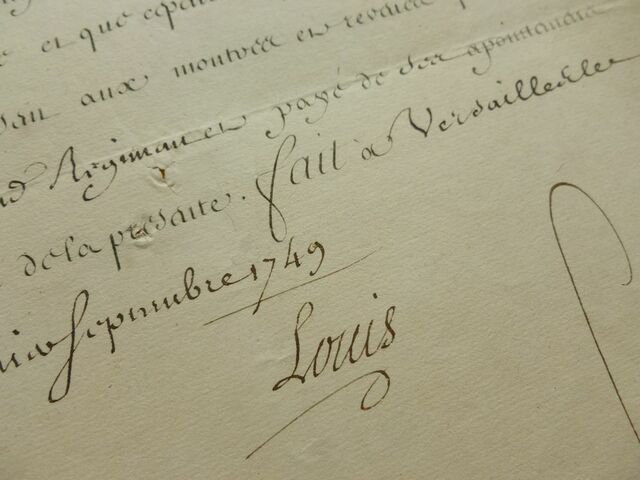 et que cepen
aux montres et reveües
Regiment et payé de ses apointements
de la presente. fait a Versailles le
Septembre 1749
Louis